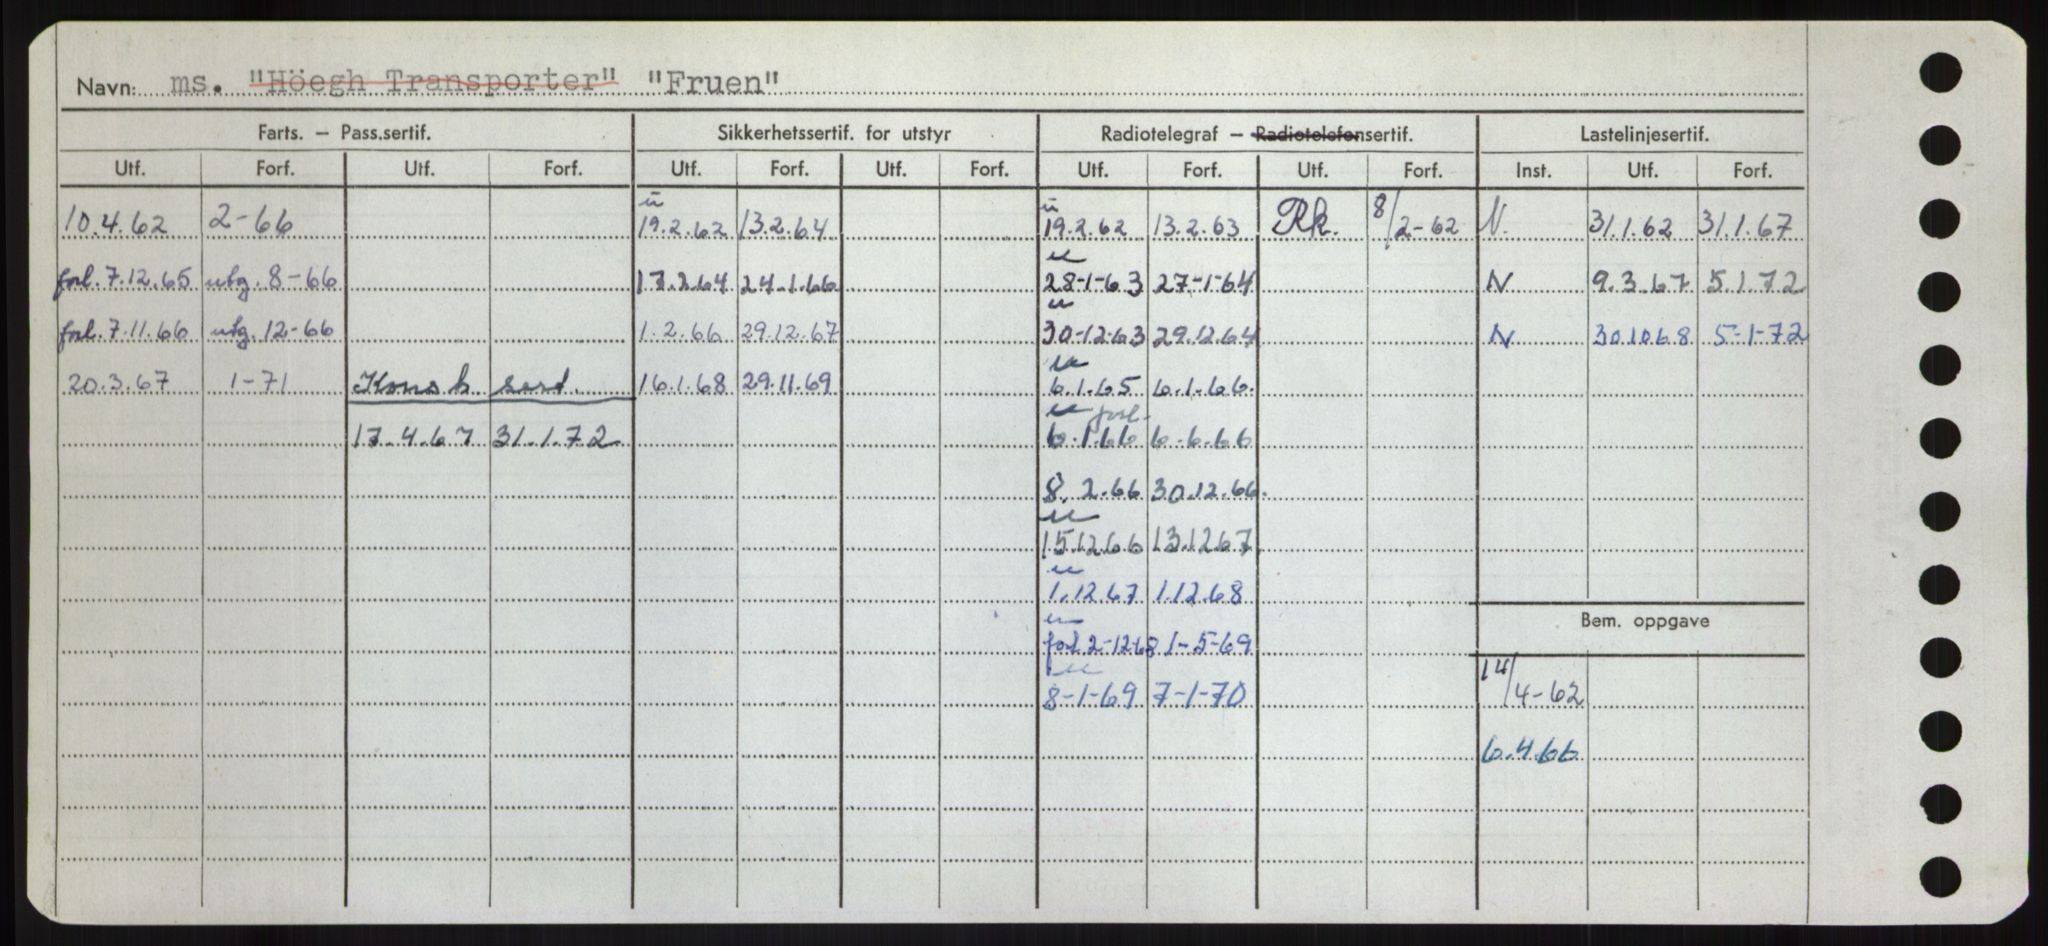 Navn: ms. "Höegh Transporter" "Fruen"
Farts. – Pass.sertif. Sikkerhetssertif. for utstyr Radiotelegraf – Radiotelefonsertif. Lastelinjesertif.
Utf. Forf. Utf. Forf. Utf. Forf. Utf. Forf. Utf. Forf. Utf. Forf. Inst. Utf. Forf.
u u
10.4.62 2-66 19.2.62 13.2.64 19.2.62 13.2.63 Rk. 8/2-62 N. 31.1.62 31.1.67
u
forl. 7.12.65 utg. 8-66 17.2.64 24.1.66 28-1-63 27-1-64 N 9.3.67 5.1.72
u
forl. 7.11.66 utg. 12-66 1.2.66 29.12.67 30-12-63 29.12.64 N 30.10.68 5-1-72
u
20.3.67 1-71 Konsb. sert. 16.1.68 29.11.69 6.1.65 6.1.66.
u forl.
17.4.67 31.1.72 6.1.66 6.6.66
8.2.66 30.12.66.
u
15.12.66 13.12.67
u
1.12.67 1.12.68
u
Bem. oppgave
forl. 2-12-68 1-5-69
u
8-1-69 7-1-70 14/4-62
6.4.66